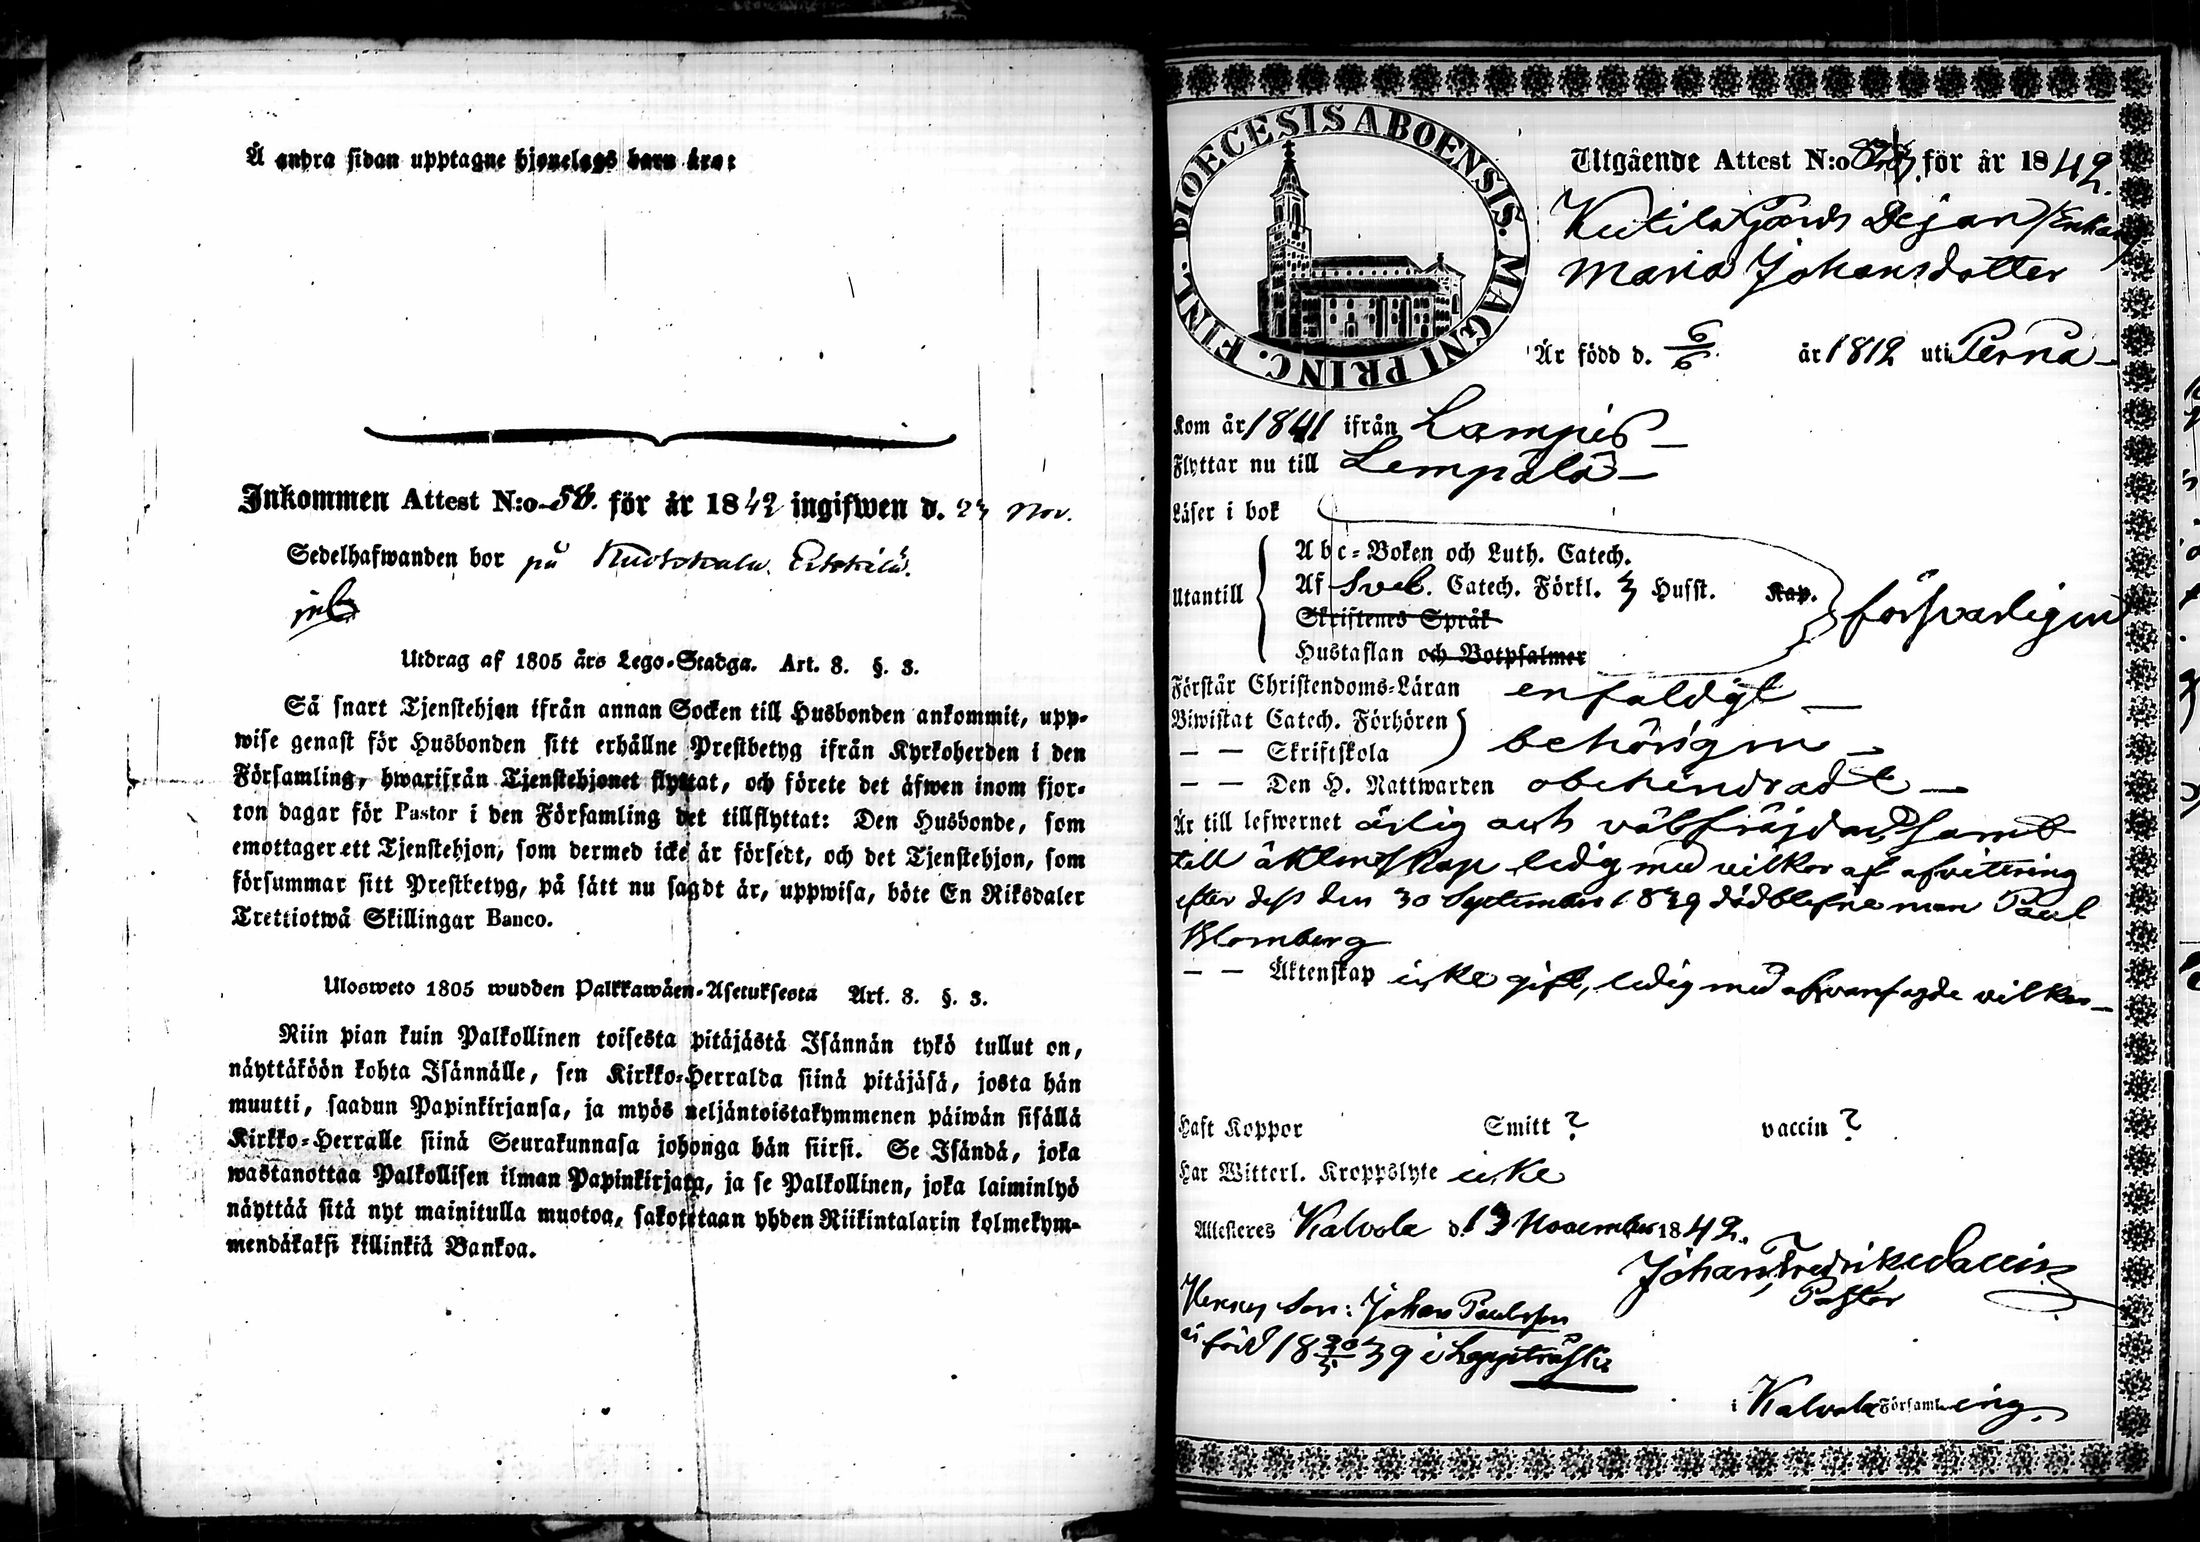 Å andra sidan upptagne hjonelags barn äro:
Inkommen Attest N:o 58. för år 1842 ingifwen d. 23 Nov.
Sedelhafwanden bor på
Utdrag af 1805 års Lego-Stadga. Art. 8. §. 3.
Så snart Tjenstehjon ifrån annan Socken till Husbonden ankommit, upp-
wise genast för Husbonden sitt erhållne Prestbetyg ifrån Kyrkoherden i den
Församling, hwarifrån Tjenstehjonet flyttat, och förete det äfwen inom fjor-
ton dagar för Pastor i den Församling det tillflyttat: Den Husbonde, som
emottager ett Tjenstehjon, som dermed icke är försedt, och det Tjenstehjon, som
försummar sitt Prestbetyg, på sätt nu sagdt är, uppwisa, böte En Riksdaler
Trettiotwå Skillingar Banco.
Ulosweto 1805 wudden Palkkawäen-Asetuksesta Art. 8. §. 3.
Niin pian kuin Palkollinen toisesta pitäjästä Isännän tykö tullut on,
näyttäköön kohta Isännälle, sen Kirkko-Herralda siinä pitäjäsä, josta hän
muutti, saadun Papinkirjansa, ja myös neljäntoistakymmenen päiwän sisällä
Kirkko-Herralle siinä Seurakunnasa johonga hän siirsi. Se Isändä, joka
wastanottaa Palkollisen ilman Papinkirjata, ja se Palkollinen, joka laiminlyö
näyttää sitä nyt mainitulla muotoa, sakotetaan yhden Riikintalarin kolmekym-
mendäkaksi killinkiä Bankoa.
DIOECESIS ABOENSIS. MAGNI PRINC. FINL.
Utgående Attest N:o för år 1842.
Kutila Gårds Dejan Enkan
Maria Johansdotter
Är född d. 6/6 år 1812 uti Perno
Kom år 1841 ifrån Lampis
Flyttar nu till Lempälä
Läser i bok
Utantill
Abc-Boken och Luth. Catech.
Af Sveb. Catech. Förkl. 3 Hufst. Kap.
Skriftenes Språk
Hustaflan och Botpsalmer
försvarligen
Förstår Christendoms-Läran enfaldigt
Biwistat Catech. Förhören
— — Skriftskola
behörigen
— — Den H. Nattwarden obehindradt
Är till lefwernet ärlig och välfräjdad, samt
till äktenskap ledig med vilkor af afvittring
efter dess den 30 September 1839 dödblefne man Paul
Blomberg
— — Äktenskap icke gift, ledig med ofvansagde vilkor
Haft Koppor Smitt ? vaccin ?
Har Witterl. Kroppslyte icke
Attesteres Kalvola d. 13 November 1842.
Johan Fredrik
Pastor
Hennes son: Johan Paulsson
är född 18 30/5 39 i Lappträsk
i Kalvola Församling.